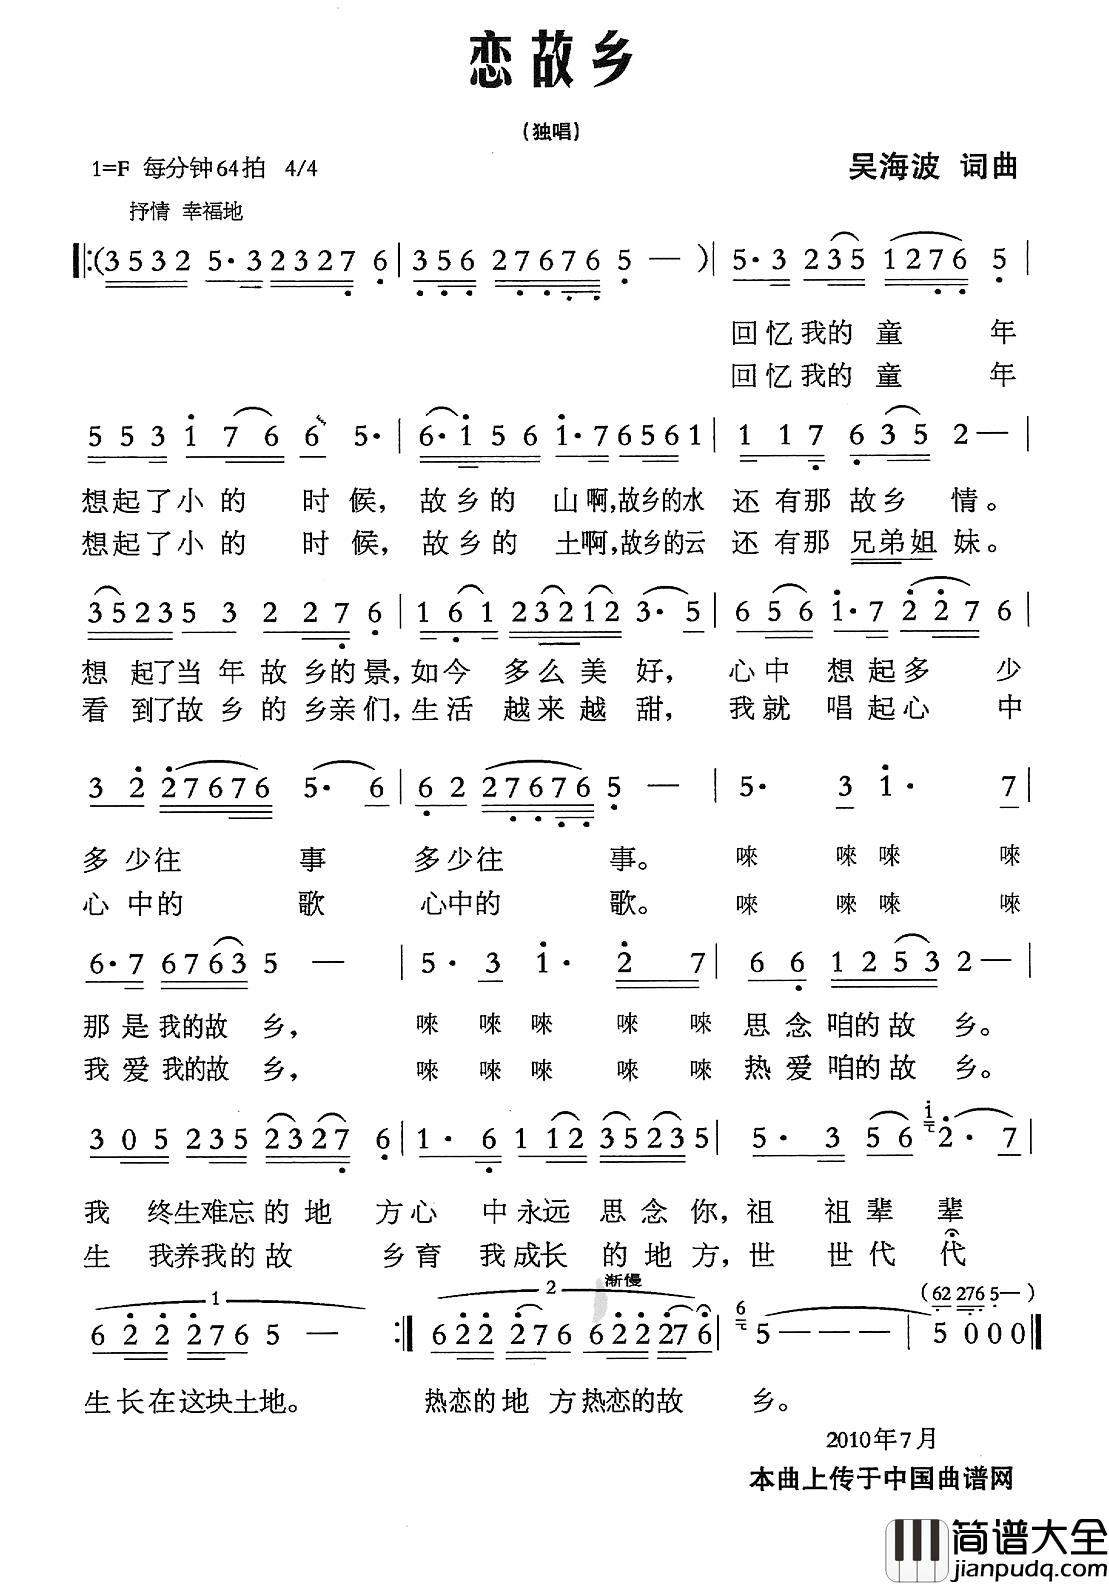 恋故乡
(独唱)
1=F 每分钟64拍 4/4
吴海波 词曲
抒情 幸福地
(3532 5·32327 6 | 356 27676 5 — ) | 5·3 235 1276 5 |
回忆我的童年
回忆我的童年
553 1 76 6 5· | 6·156 1·76561 | 117 635 2— |
想起了小的时候,故乡的山啊,故乡的水还有那故乡情。
想起了小的时候,故乡的土啊,故乡的云还有那兄弟姐妹。
3523553 2 27 6 | 161 23212 3·5 | 656 1·7 227 6 |
想起了当年故乡的景,如今多么美好,心中想起多少
看到了故乡的乡亲们,生活越来越甜,我就唱起心中
3 2 27676 5· 6 | 62 27676 5 — | 5· 3 1· 7 |
多少往事多少往事。唻唻唻唻
心中的歌心中的歌。唻唻唻唻
6·7 6763 5 — | 5· 3 1· 2 7 | 66 1253 2— |
那是我的故乡,唻唻唻唻唻思念咱的故乡。
我爱我的故乡,唻唻唻唻唻热爱咱的故乡。
305 235 2327 6 | 1· 6 112 352355 | 5· 3 56 1 2· 7 |
我终生难忘的地方心中永远思念你,祖祖辈辈
生我养我的故乡育我成长的地方,世世代代
1 2 渐慢
(62 276 5—)
622 276 5 — :| 622 276 622276 | 6 5——— | 5000 |
生长在这块土地。热恋的地方热恋的故乡。
2010年7月
本曲上传于中国曲谱网
简谱大全
jianpudq.com